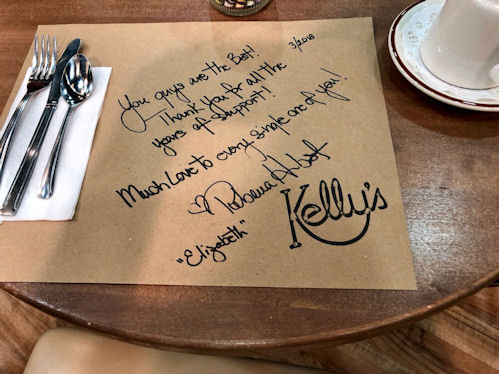 3/2018
You guys are the Best!
Thank You for all the
years of Support!!
Much Love to every single one of you!
"Elizabeth"
Kelly's